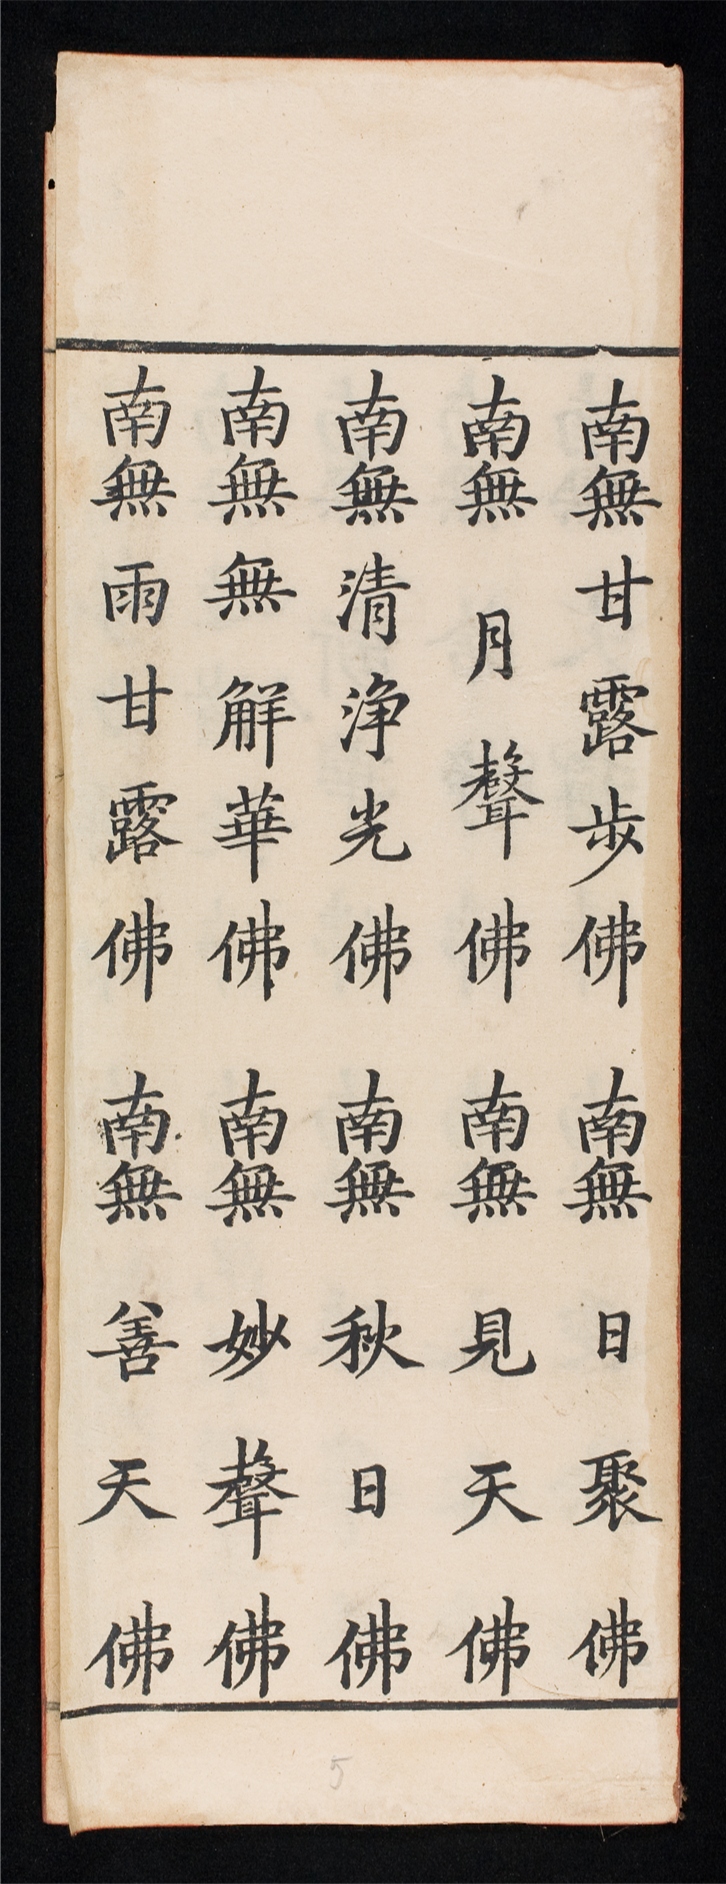 南無甘露步佛 南無日聚佛
南無月聲佛 南無見天佛
南無清淨光佛 南無秋日佛
南無無解華佛 南無妙聲佛
南無雨甘露佛 南無善天佛
5